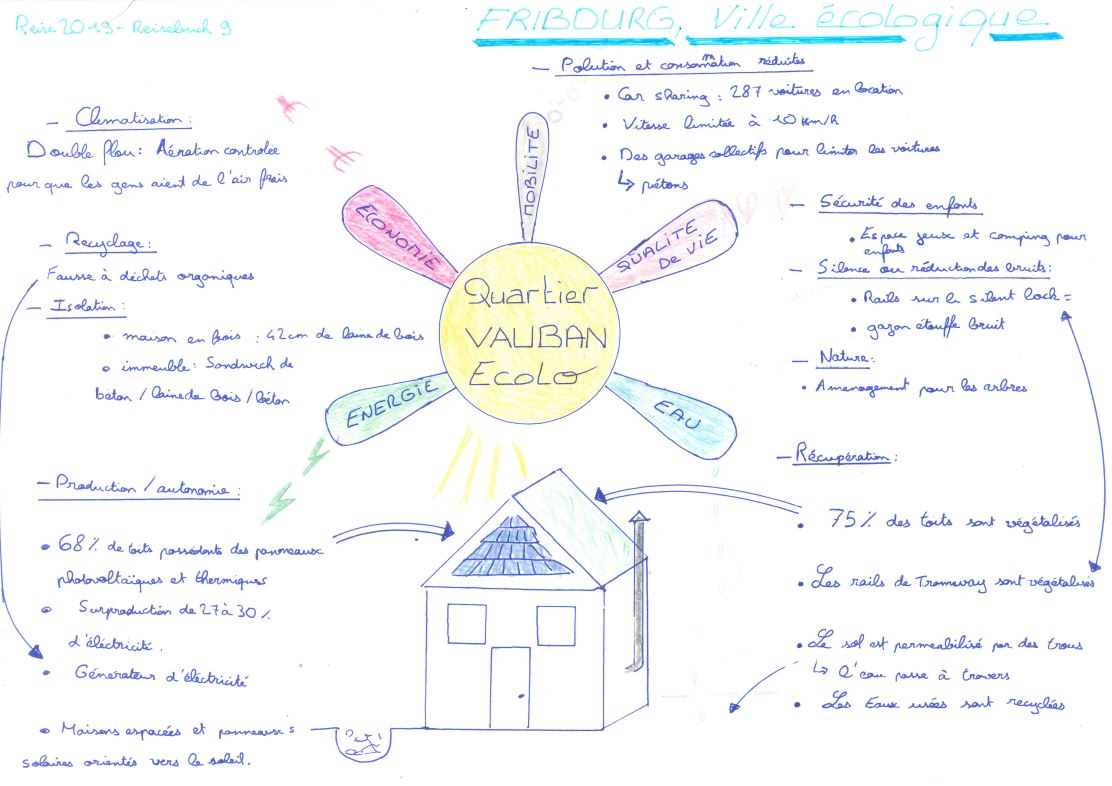 Reise 2019 - Reisebuch 9
FRIBOURG, Ville écologique
— Polution et consommation réduites
• Car sharing : 287 voitures en location
• Vitesse limitée à 10 km/h
• Des garages collectifs pour limiter les voitures
↳ piétons
— Climatisation :
Double flou : Aération controlée
pour que les gens aient de l'air frais
— Recyclage :
Fausse à déchets organiques
— Isolation :
• maison en bois : 42cm de laine de bois
• immeuble : Sandwich de
béton / laine de bois / béton
MOBILITE
ECONOMIE
QUALITE
De VIE
Quartier
VAUBAN
Ecolo
ENERGIE
EAU
— Sécurité des enfants
• Espace jeux et camping pour
enfants
— Silence ou réduction des bruits :
• Rails sur le silent lock =
• gazon étouffe bruit
— Nature :
• Amenagement pour les arbres
— Production / autonomie :
• 68 % de toits possédants des panneaux
photovoltaïques et thermiques
• Surproduction de 27 à 30 %
d'éléctricité.
• Générateur d'éléctricité
• Maisons espacées et panneaux s
solaires orientés vers le soleil.
— Récupération :
• 75 % des toits sont végétalisés
• Les rails de Tramway sont végétalisés
• Le sol est permeabilisé par des trous
↳ l'eau passe à travers
• Les Eaux usées sont recyclées